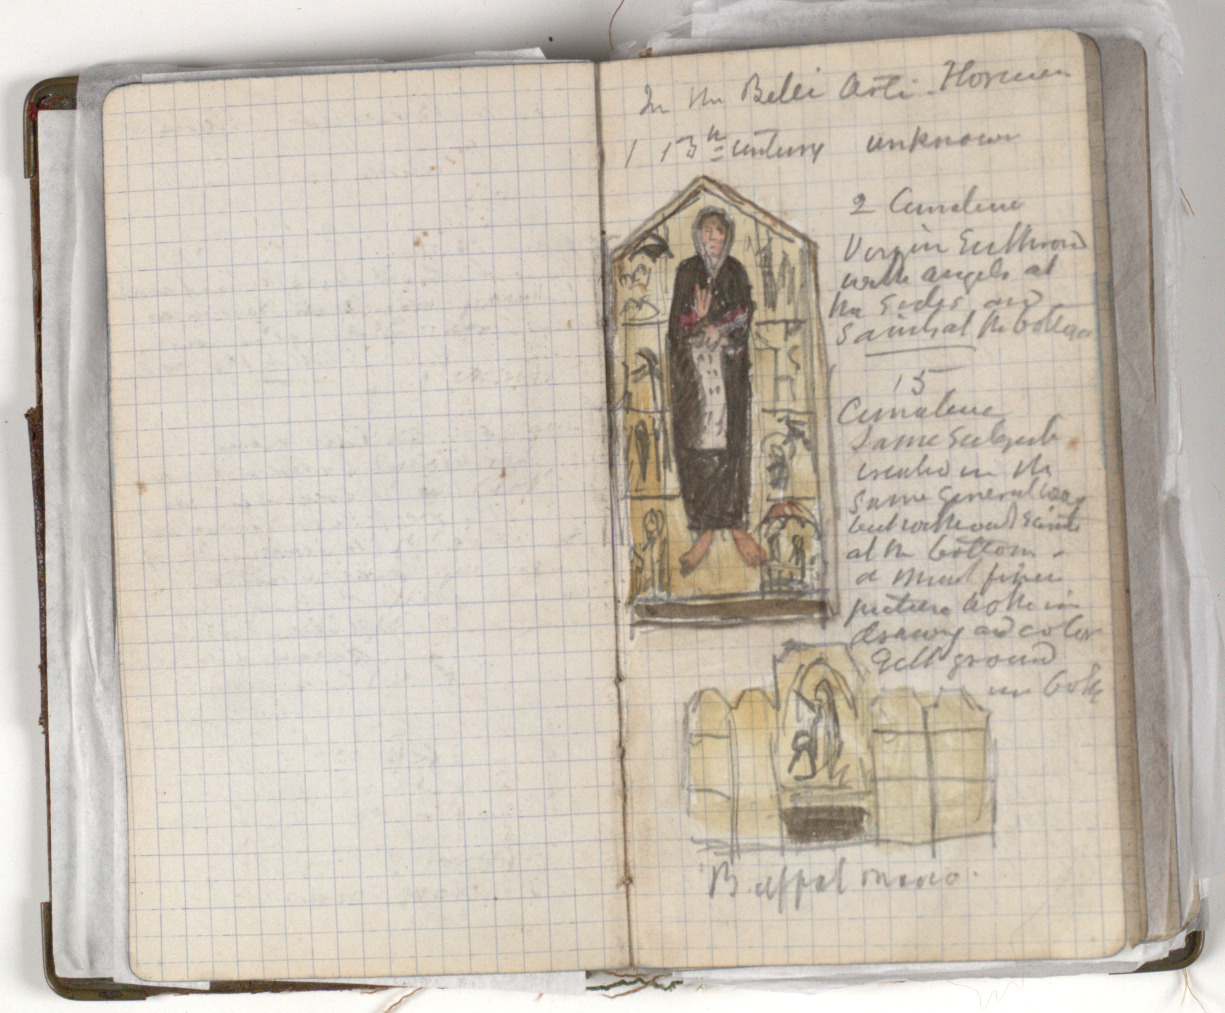 In the Belli Arti. Florence
1 13th century unknown
2 Cimabue
Virgin Enthroned
with angels at
the sides and
Saints at the bottom
15
Cimabue
Same subject
treated in the
same general way
but without saints
at the bottom -
a much finer
picture both in
drawing and color
Gilt ground
in both